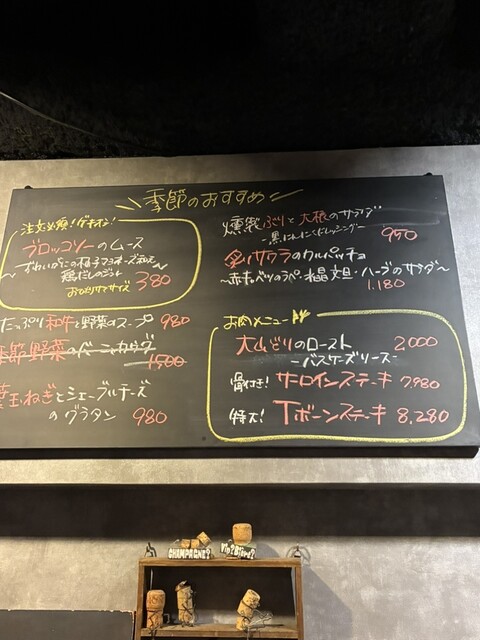 季節のおすすめ
注文必須!ゲキオシ!
ブロッコリーのムース
〜ずわいがにの柚子マヨネーズ和え〜
鶏だしのジュレ
おひとりサマサイズ 380
たっぷり和牛と野菜のスープ 980
季節野菜のバーニャカウダ
1500
葉玉ねぎとシェーブルチーズ
のグラタン 980
燻製ぶりと大根のサラダ
-黒にんにくドレッシング- 950
炙りサワラのカルパッチョ
〜赤キャベツのラペ・水晶文旦・ハーブのサラダ〜
1.180
お肉メニュー
大山どりのロースト 2000
-バスケーズソース-
骨付き!サーロインステーキ 7,980
特大!Tボーンステーキ 8,280
CHAMPAGNE?
Vin?Bière?